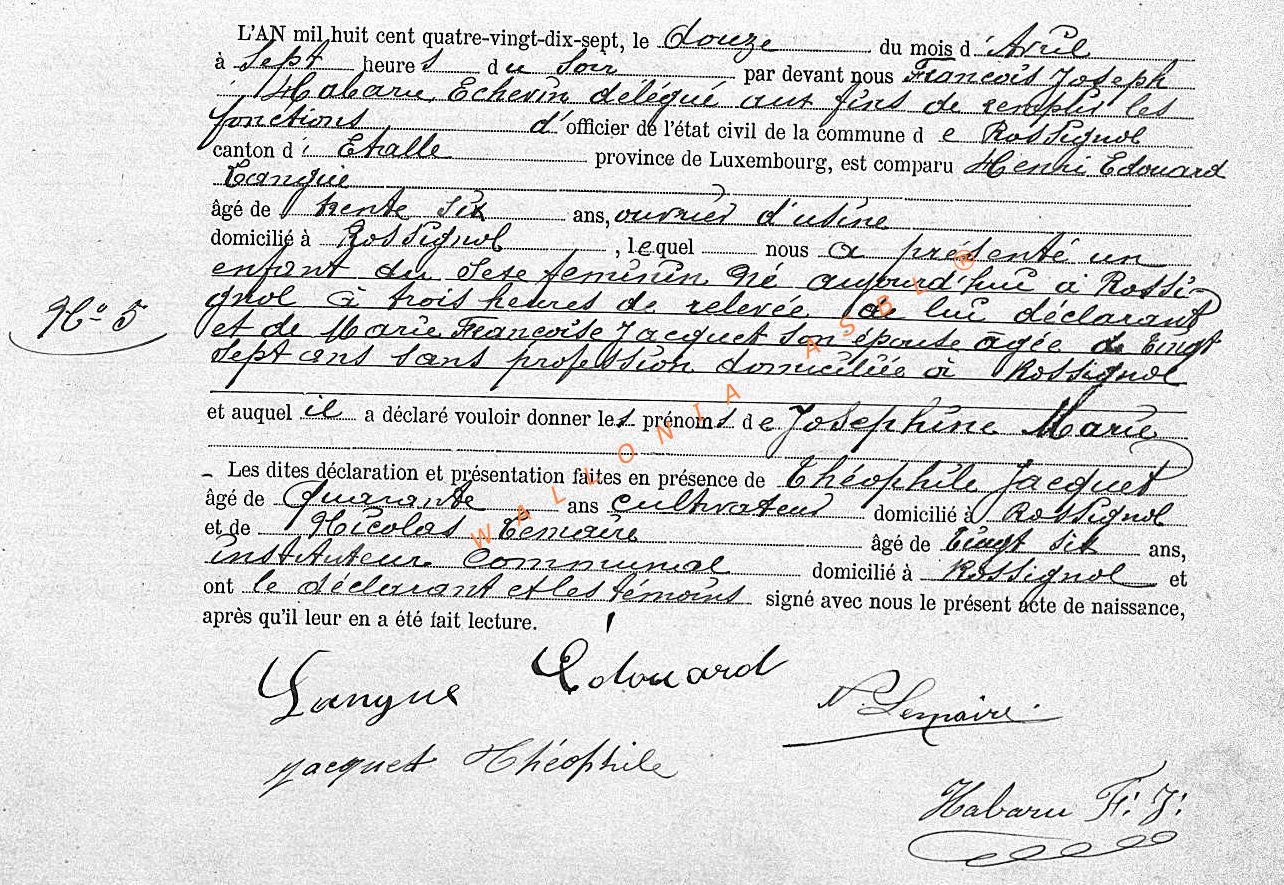 L'AN mil huit cent quatre-vingt-dix-sept, le douze du mois d'Avril
à sept heures du soir par devant nous François Joseph
Habaru, Echevin délégué aux fins de remplir les
fonctions d'officier de l'état civil de la commune de Rossignol
canton d'Etalle province de Luxembourg, est comparu Henri Edouard
Langue
âgé de trente six ans, ouvrier d'usine
domicilié à Rossignol, lequel nous a présenté un
enfant du sexe feminin né aujourd'hui à Rossi-
N° 5
gnol à trois heures de relevée de lui déclarant
et de Marie Françoise Jacquet son épouse âgée de vingt
sept ans sans profession domiciliée à Rossignol
et auquel il a déclaré vouloir donner les prénoms de Joséphine Marie
Les dites déclaration et présentation faites en présence de Théophile Jacquet
âgé de quarante ans cultivateur domicilié à Rossignol
et de Nicolas Lemaire âgé de vingt six ans,
instituteur communal domicilié à Rossignol et
ont le déclarant et les témoins signé avec nous le présent acte de naissance,
après qu'il leur en a été fait lecture.
Langue Edouard
N. Lemaire
Jacquet Théophile
Habaru F. J.
WALLONIA ASBL ®